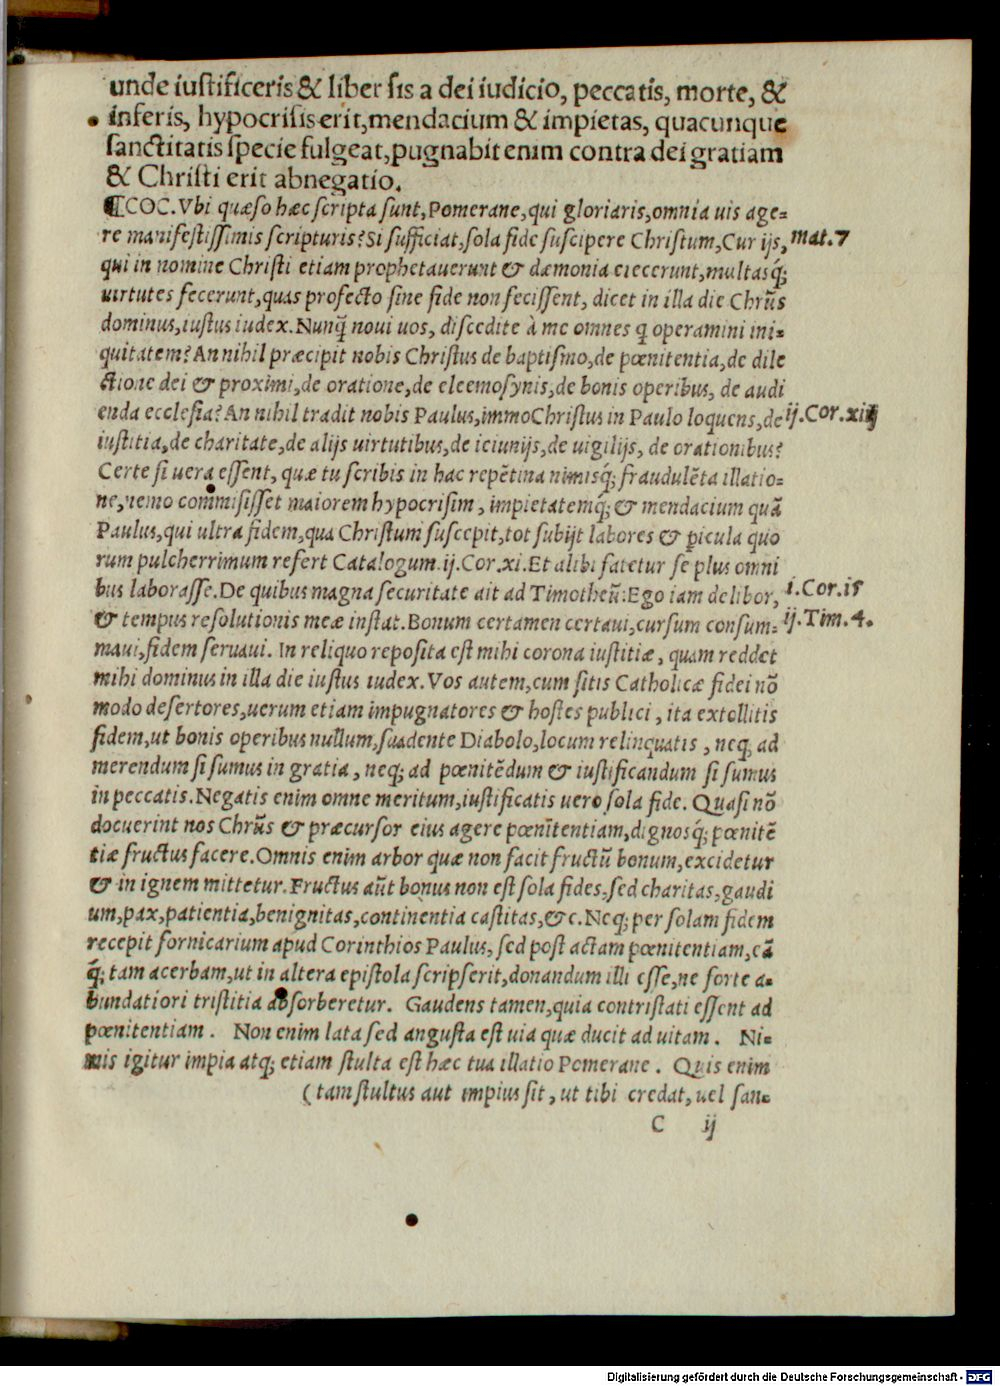 unde iustificeris & liber sis a dei iudicio, peccatis, morte, &
inferis, hypocrisis erit, mendacium & impietas, quacunque
sanctitatis specie fulgeat, pugnabit enim contra dei gratiam
& Christi erit abnegatio.
¶COC. Vbi quæso hæc scripta sunt, Pomerane, qui gloriaris, omnia uis age=
re manifestissimis scripturis? Si sufficiat, sola fide suscipere Christum, Cur ijs, mat. 7
qui in nomine Christi etiam prophetauerunt & dæmonia eiecerunt, multasq́;
uirtutes fecerunt, quas profecto sine fide non fecissent, dicet in illa die Chrūs
dominus, iustus iudex. Nunq̄ noui uos, discedite à me omnes q operamini ini=
quitatem? An nihil præcipit nobis Christus de baptismo, de pœnitentia, de dile
ctione dei & proximi, de oratione, de eleemosynis, de bonis operibus, de audi
enda ecclesia? An nihil tradit nobis Paulus, immo Christus in Paulo loquens, de ij. Cor. xiij
iustitia, de charitate, de alijs uirtutibus, de ieiunijs, de uigilijs, de orationibus?
Certe si uera essent, quæ tu scribis in hac repētina nimisq́; fraudulēta illatio=
ne, nemo commisisset maiorem hypocrisim, impietatemq́; & mendacium quā
Paulus, qui ultra fidem, qua Christum suscepit, tot subijt labores & ꝑicula quo
rum pulcherrimum refert Catalogum. ij. Cor. xi. Et alibi fatetur se plus omni
bus laborasse. De quibus magna securitate ait ad Timotheū: Ego iam delibor, i. Cor. 15
& tempus resolutionis meæ instat. Bonum certamen certaui, cursum consum= ij. Tim. 4.
maui, fidem seruaui. In reliquo reposita est mihi corona iustitiæ, quam reddet
mihi dominus in illa die iustus iudex. Vos autem, cum sitis Catholicæ fidei nō
modo desertores, uerum etiam impugnatores & hostes publici, ita extollitis
fidem, ut bonis operibus nullum, suadente Diabolo, locum relinquatis, neq; ad
merendum si sumus in gratia, neq; ad pœnitēdum & iustificandum si sumus
in peccatis. Negatis enim omne meritum, iustificatis uero sola fide. Quasi nō
docuerint nos Chrūs & præcursor eius agere pœnitentiam, dignosq́; pœnitē
tiæ fructus facere. Omnis enim arbor quæ non facit fructū bonum, excidetur
& in ignem mittetur. Fructus aūt bonus non est sola fides, sed charitas, gaudi
um, pax, patientia, benignitas, continentia castitas, &c. Neq; per solam fidem
recepit fornicarium apud Corinthios Paulus, sed post actam pœnitentiam, eā
q́; tam acerbam, ut in altera epistola scripserit, donandum illi esse, ne forte a=
bundatiori tristitia absorberetur. Gaudens tamen, quia contristati essent ad
pœnitentiam. Non enim lata sed angusta est uia quæ ducit ad uitam. Ni=
mis igitur impia atq; etiam stulta est hæc tua illatio Pomerane. Quis enim
(tam stultus aut impius sit, ut tibi credat, uel san=
C ij
Digitalisierung gefördert durch die Deutsche Forschungsgemeinschaft - DFG